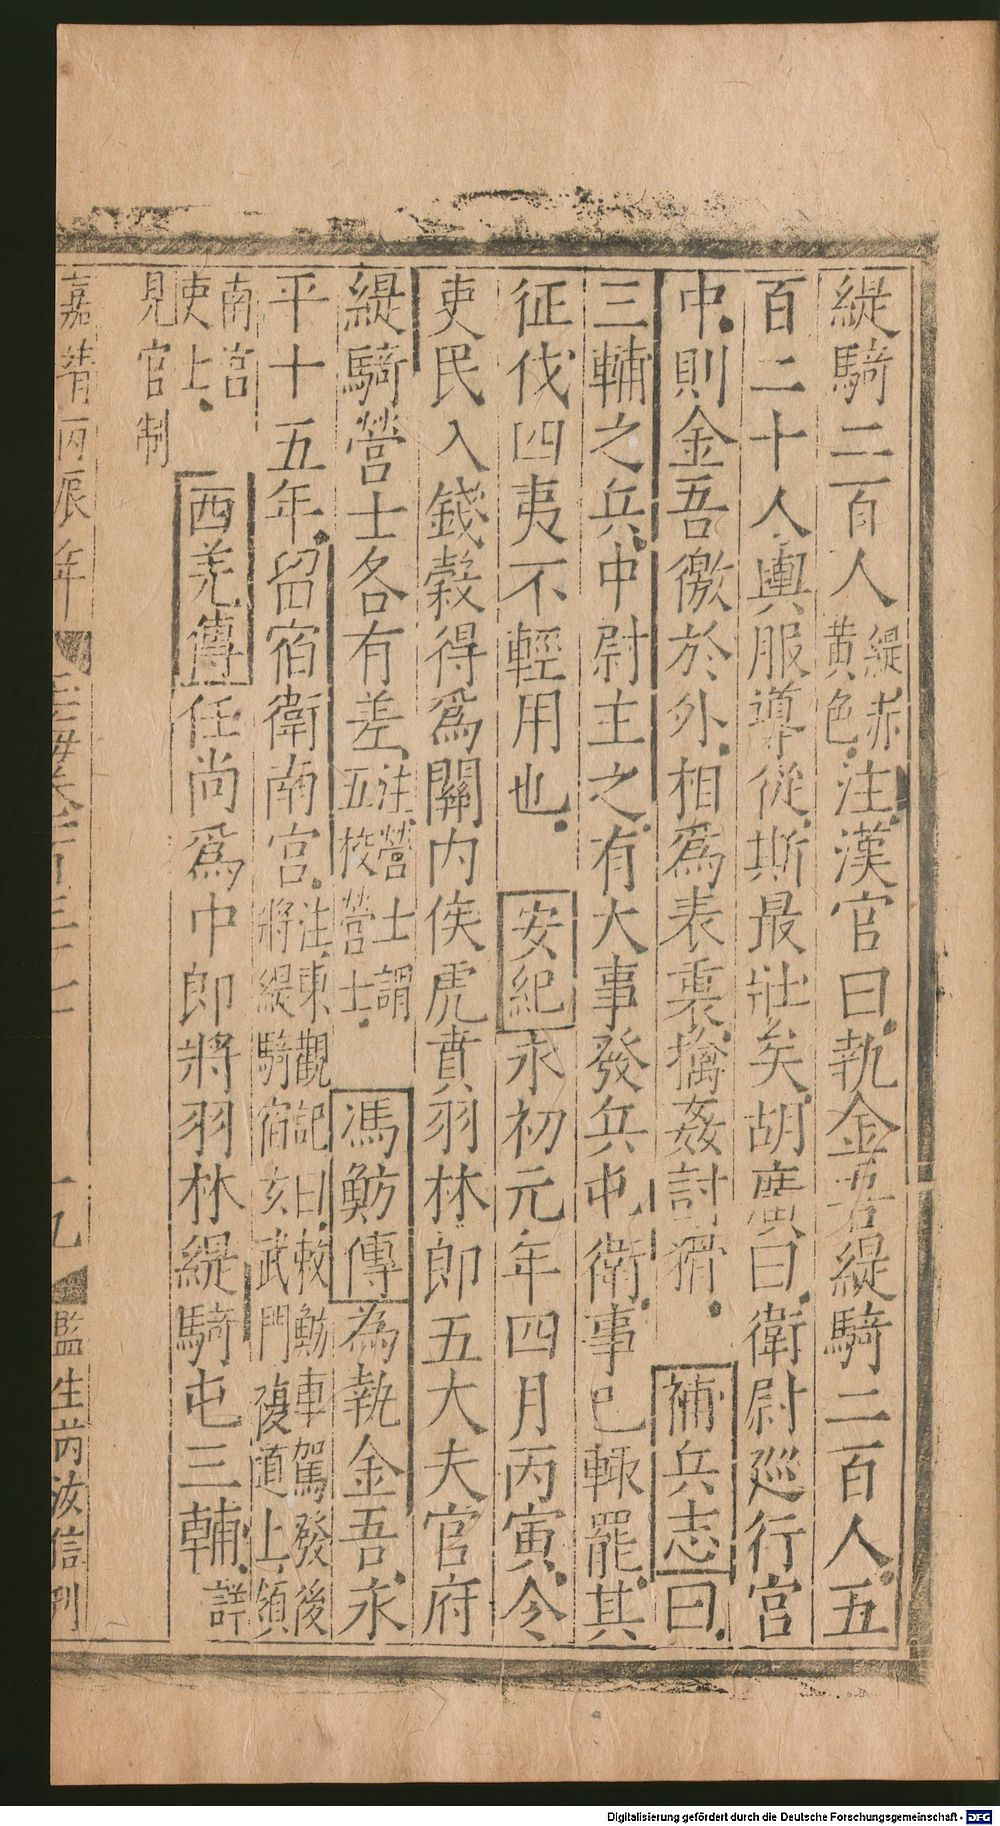 緹騎二百人緹赤黃色注漢官曰執金吾緹騎二百人五
百二十人輿服導從斯最壯矣胡廣曰衛尉巡行宮
中則金吾徼於外相爲表裏擒姦討猾補兵志曰
三輔之兵中尉主之有大事發兵屯衛事已輙罷其
征伐四夷不輕用也安紀永初元年四月丙寅令
吏民入錢穀得爲關內侯虎賁羽林郎五大夫官府
緹騎營士各有差注營士謂五校營士馮魴傳為執金吾永
平十五年留宿衛南宮注東觀記曰敕魴車駕發後將緹騎宿玄武門複道上領
南宮吏士西羌傳任尚爲中郎將羽林緹騎屯三輔詳
見官制
嘉靖丙辰年 玉海卷一百三十七 十九 監生芮汝信刊
Digitalisierung gefördert durch die Deutsche Forschungsgemeinschaft - DFG